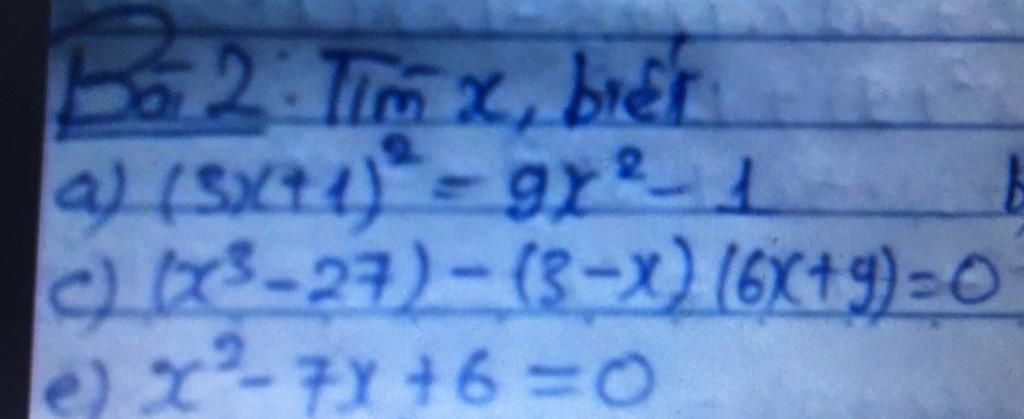 Bài 2: Tìm x, biết
a) (3x+1)² = 9x² - 1
c) (x³ - 27) - (3 - x)(6x + 9) = 0
e) x² - 7x + 6 = 0